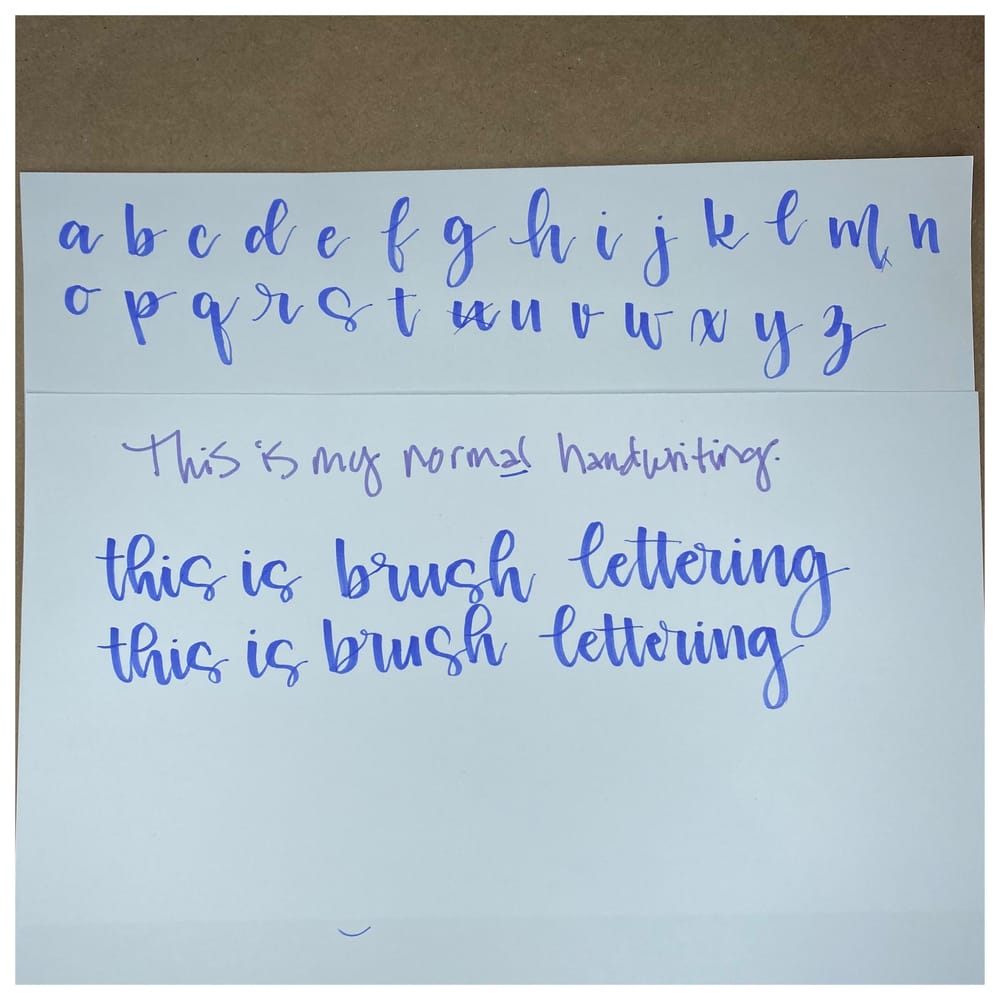 a b c d e f g h i j k l m n
o p q r s t u v w x y z
This is my normal handwriting.
this is brush lettering
this is brush lettering